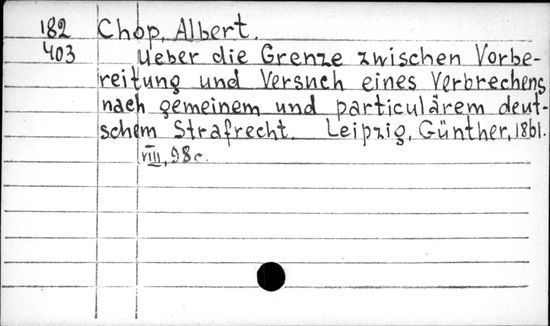 182 Chop, Albert.
403 Ueber die Grenze zwischen Vorbe-
reitung und Versuch eines Verbrechens
nach gemeinem und particulärem deut-
schem Strafrecht. Leipzig, Günther, 1861.
VIII, 98 c.